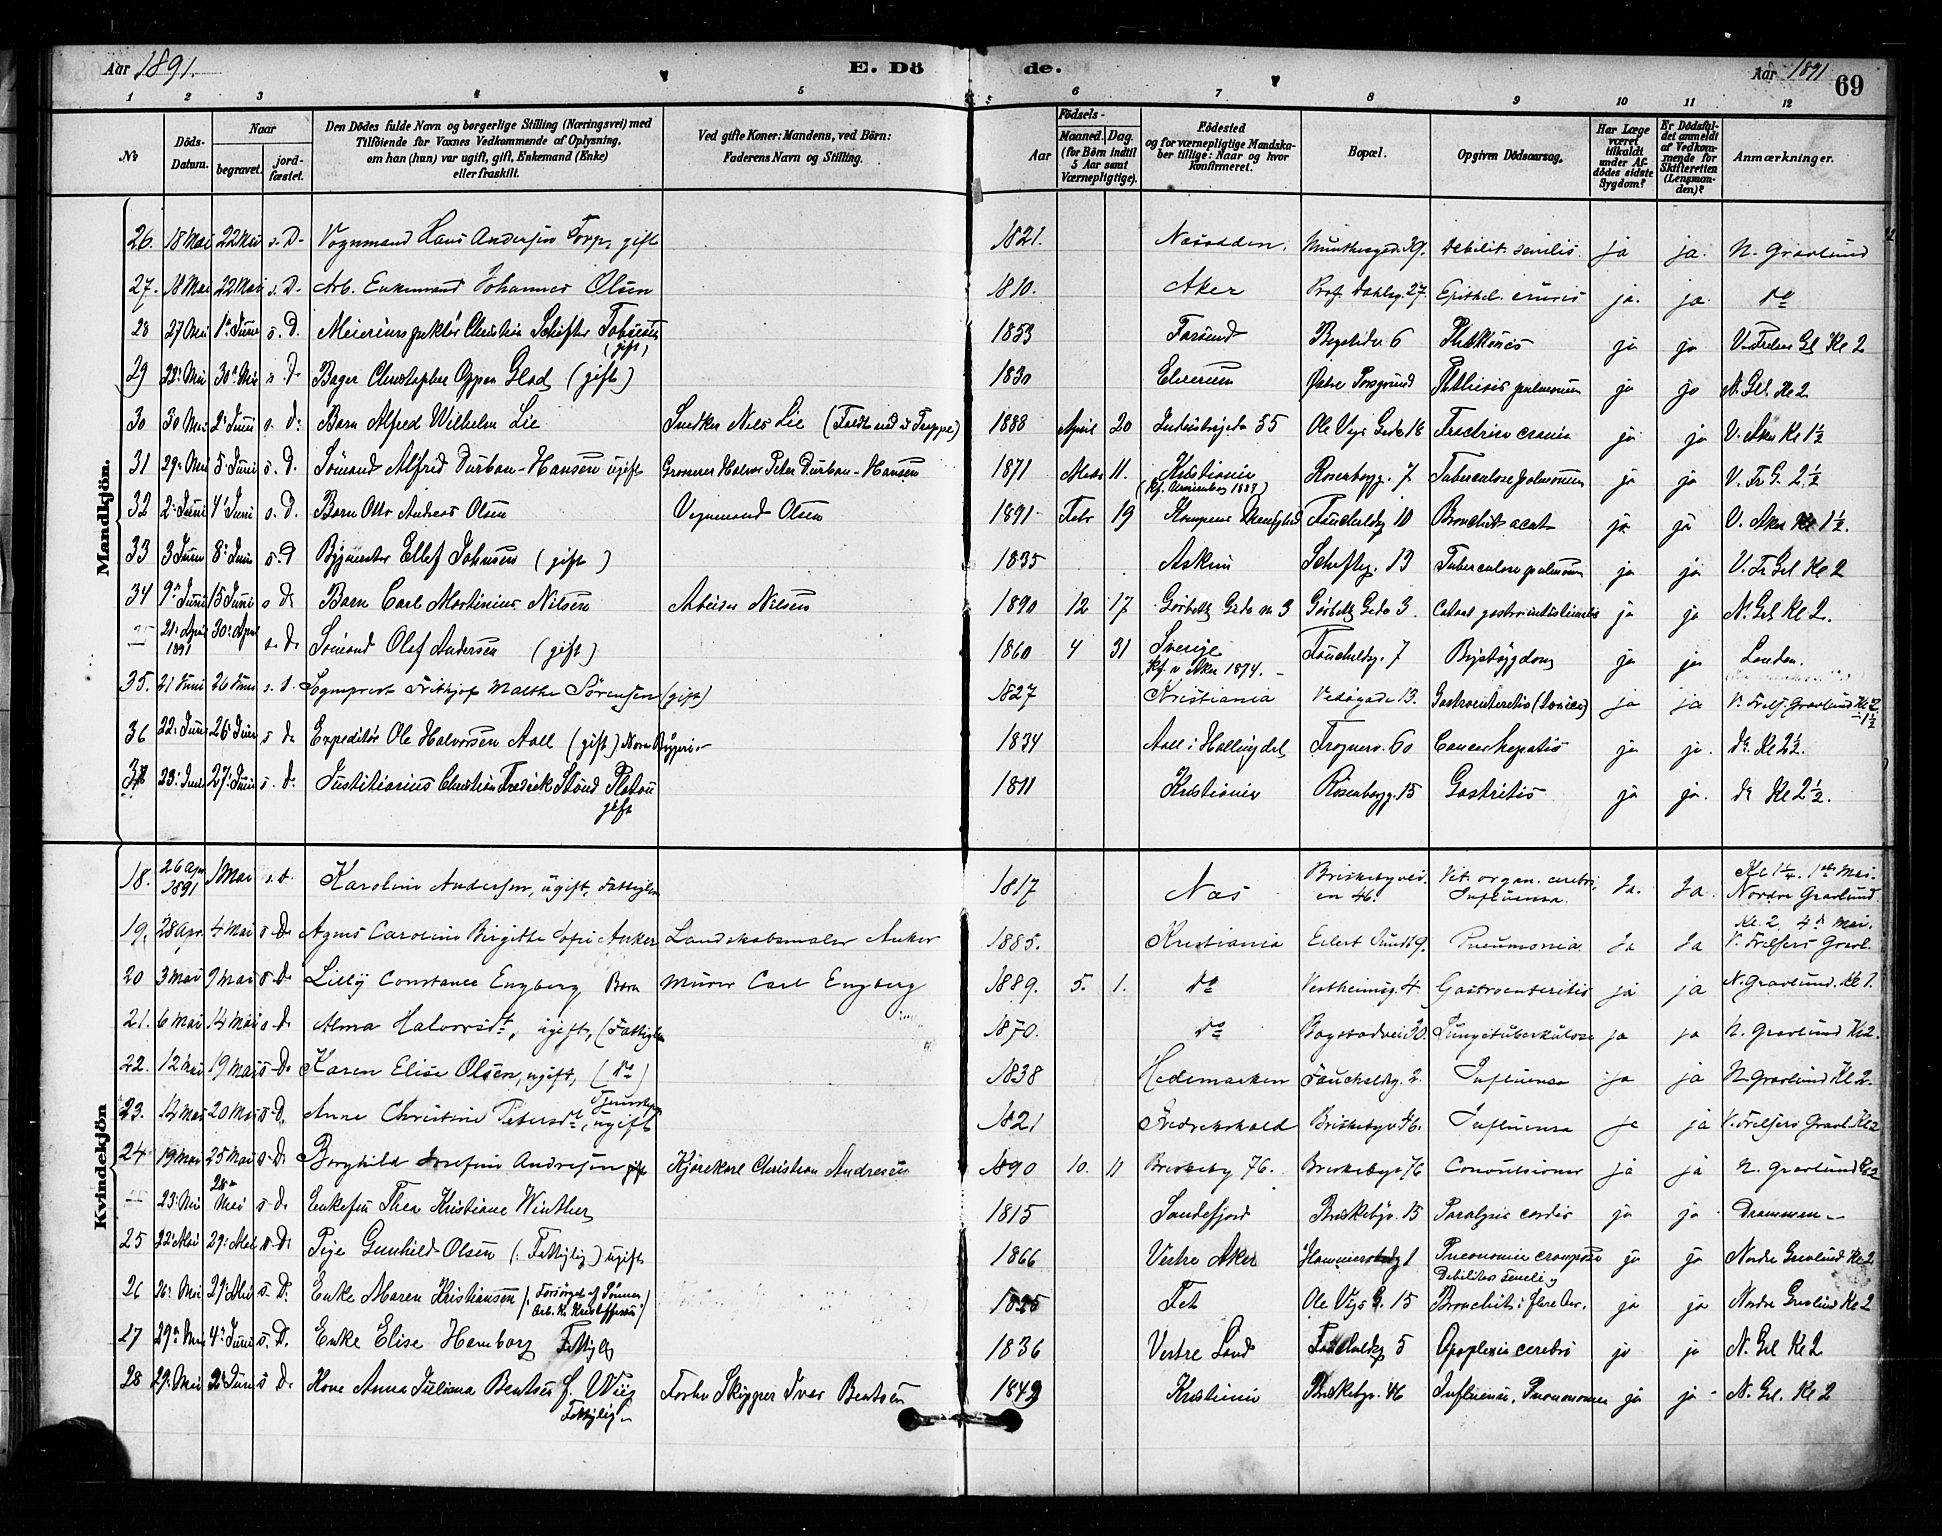 Aar 1891. E. Dö de. Aar 1891 69
1 2 3 4 5 5 6 7 8 9 10 11 12
No
Döds-Datum.
Naar
begravet.
jord-fæstet.
Den Dödes fulde Navn og borgerlige Stilling (Næringsvei) med
Tilföiende for Voxnes Vedkommende af Oplysning,
om han (hun) var ugift, gift, Enkemand (Enke)
eller fraskilt.
Ved gifte Koner: Mandens, ved Börn:
Faderens Navn og Stilling.
Aar
Födsels-
Maaned. Dag.
(for Börn indtil
5 Aar samt
Værnepligtige).
Födested
og for værnepligtige Mandska-
ber tillige: Naar og hvor
Konfirmeret.
Bopæl.
Opgiven Dödsaarsag.
Har Læge
været
tilkaldt
under Af-
dödes sidste
Sygdom?
Er Dödsfal-
det anmeldt
af Vedkom-
mende for
Skifteretten
(Lensman-
den)?
Anmærkninger.
Mandkjön.
26. 18 Mai 22 Mai s. D. Vognmand Hans Andersen Torp, gift 1821. Næsodden. Munthesgd. 39. Debilit. senilis ja ja. N. Gravlund
27. 18 Mai 22 Mai s. D. Arb. Enkemand Johannes Olsen 1810. Aker Prof. Dahlsg. 27. Epithel. cruris ja. ja. do
28 27 Mai 1ste Juni s. D. Meieriinspektör Christian Schifter (gift) 1853 Farsund Bogstadv. 6 ja ja V. Frelsers Gl Kl 2
29 22. Mai 30te Mai s. D. Bager Christopher Oppen Glad (gift) 1830 Elverum Østre Porsgrund Phthisis pulmonum ja ja N. Grl. Kl 2
30 30 Mai 2den Juni s. D. Barn Alfred Wilhelm Lie Snedker Nils Lie (Faldt ned et Trappe) 1888 April 20 Industrigade 55 Ole Vigs Gade 18 Fractura cranii ja ja V. Aker Kl 1½
31 29de Mai 5 Juni s. D. Sömand Alfrid Durban-Hansen ugift Grosserer Halvor Peter Durban-Hansen 1871 Marts 11. Kristiania Rosenborgg. 7 Tuberculose pulmonum ja ja V. Fr G. 2½
32 2. Juni 4. Juni s. D. Barn Otto Andreas Olsen Vognmand Olsen 1891 Febr 19 Kampens Menighed Fauchaldsg 10 Bronchit acut ja ja V. Aker Kl 1½.
33 3 Juni 8. Juni s. D Bygmester Ellef Johnsen (gift) 1835 Askim Schultzg. 13 Tuberculose pulmonum ja ja V. Fr Grl Kl 2
34 9de Juni 15 Juni s. D. Barn Carl Martinius Nilsen Arbeider Nilsen 1890 12 17 Görbitz Gade no 3 Görbitz Gade 3. Catarr gastrointestinalis ja ja N. Grl Kl 2.
21. April 1891 30. April s. D. Sömand Olaf Andersen (gift) 1860 4 31 Sverige Kf. v Aker 1874. Fauchaldsg. 7 Brystsygdom ja ja London.
35. 21 Juni 26 Juni s. D. Sogneprest Frithjof Malthe Sörensen (gift) 1827 Kristiania Vedagade 13. Gastroenteritis ja ja V. Frels. Gravlund Kl 2 - 1½
36 22. Juni 26. Juni s. D. Expeditör Ole Halvorsen Aall (gift) 1834 Aall i Hallingdal Frognerv. 60 Cancer hepatis ja ja. do. Kl 2½.
37 23. Juni 27. Juni s. D. Justitiarius Christian Fredrik Stoud Platou gift 1811 Kristiania Rosenborgg. 15 Gastritis ja ja. do Kl 2½.
Kvindekjön
18. 26 Apr 1891 1 Mai s. D. Karoline Andersen, ugift, Fattiglem 1817 Næs Briskebyvei-en 46. Vit. organ. cerebri, Influensa Ja. Ja Kl 1¼. 1ste Mai. Nordre Gravlund
19. 28 Apr. 4 Mai s. D. Agnes Caroline Birgitte Sofie Anker Landskabsmaler Anker 1885. Kristiania Eilert Sundt 9. Pneumonia Ja Ja Kl. 2 4de Mai. V. Frelsers Gravl.
20 3 Mai 9 Mai s. D. Lilly Constance Engberg Barn Murer Carl Engberg 1889. 5. 1. do Vestheimsg. 4 Gastroenteritis ja ja N. Gravlund. Kl 1.
21. 6 Mai 14 Mai s. D. Alma Halvorsdt., ugift, (Fattiglem 1870. do Bogstadvei 30. Lungetuberkulose ja ja N. Gravlund Kl 2.
22. 12 Mai 19 Mai s. D. Karen Elise Olsen, ugift, (do) 1838 Hedemarken Fauchaldsg. 2. Influensa ja ja N. Gravlund Kl 2.
23. 14 Mai 20 Mai s. D. Anne Christine Petersdt., ugift 1821 Fredrikshald Briskebyv 46. Influensa ja ja V. Frelsers Gravl. Kl 2
24. 19 Mai 25 Mai s. D. Borghild Josefine Andresen Kjörekarl Christian Andresen 1890 10. 11 Briskeby 76. Briskebyv 76 Convulsioner ja ja N. Gravlund Kl 2
23. Mai 28de Mai s. D. Enkefru Thea Kristiane Winther 1815 Sandefjord Briskebyv. 15 Paralysis cordis ja ja Drammen
25 22. Mai 29. Mai s. D. Pige Gunhild Olsen (: Fattiglig) ugift 1866 Vestre Aker Hammerstadg 1 Pneumonia crouposa ja ja Nordre Gravlund Kl 2
26 26. Mai 29. Mai s. D. Enke Maren Kristiansen (: Forsörget af Sönnen Arb. K. Kristoffersen) Fet Ole Vigs G. 15 Debilitas senilis Bronchit i flere Aar. ja ja Nordre Gravlund Kl 2
27 29de Mai 4. Juni s. D. Enke Elise Hamborg Fattiglig 1836 Vestre Land Fauchaldsg 5 Apoplexia cerebri ja ja N. Grl Kl 2
28 29. Mai 2. Juni s. D. Kone Anna Juliana Bentsen f. Wiig Fattiglig Forhv Skipper Iver Bentsen 1849 Kristiania Briskebyv. 46 Influensa, Pneumonia ja ja N. Grl. Kl 2